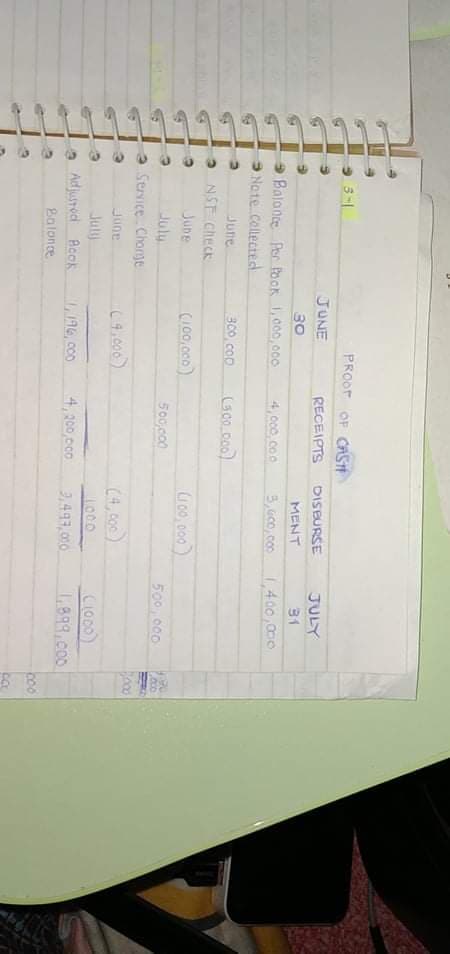 3-1
PROOF OF CASH
JUNE 30 RECEIPTS DISBURSEMENT JULY 31
Balance Per Book 1,000,000 4,000,000 3,600,000 1,400,000
Note Collected
June 300,000 (300,000)
NSF Check
June (100,000) (100,000)
July 500,000 500,000
Service Charge
June (4,000) (4,000)
July 1000 (1000)
Adjusted Book 1,196,000 4,200,000 3,497,000 1,899,000
Balance